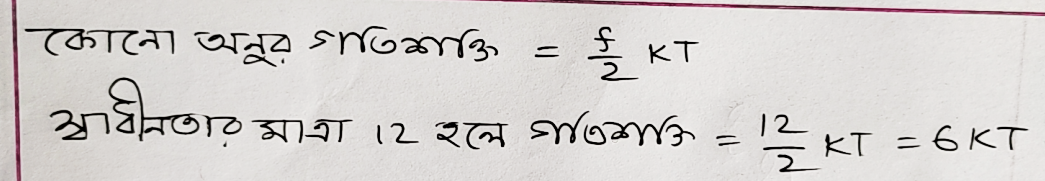 কোনো অনুর গতিশক্তি = f/2 KT
স্বাধীনতার মাত্রা 12 হলে গতিশক্তি = 12/2 KT = 6KT